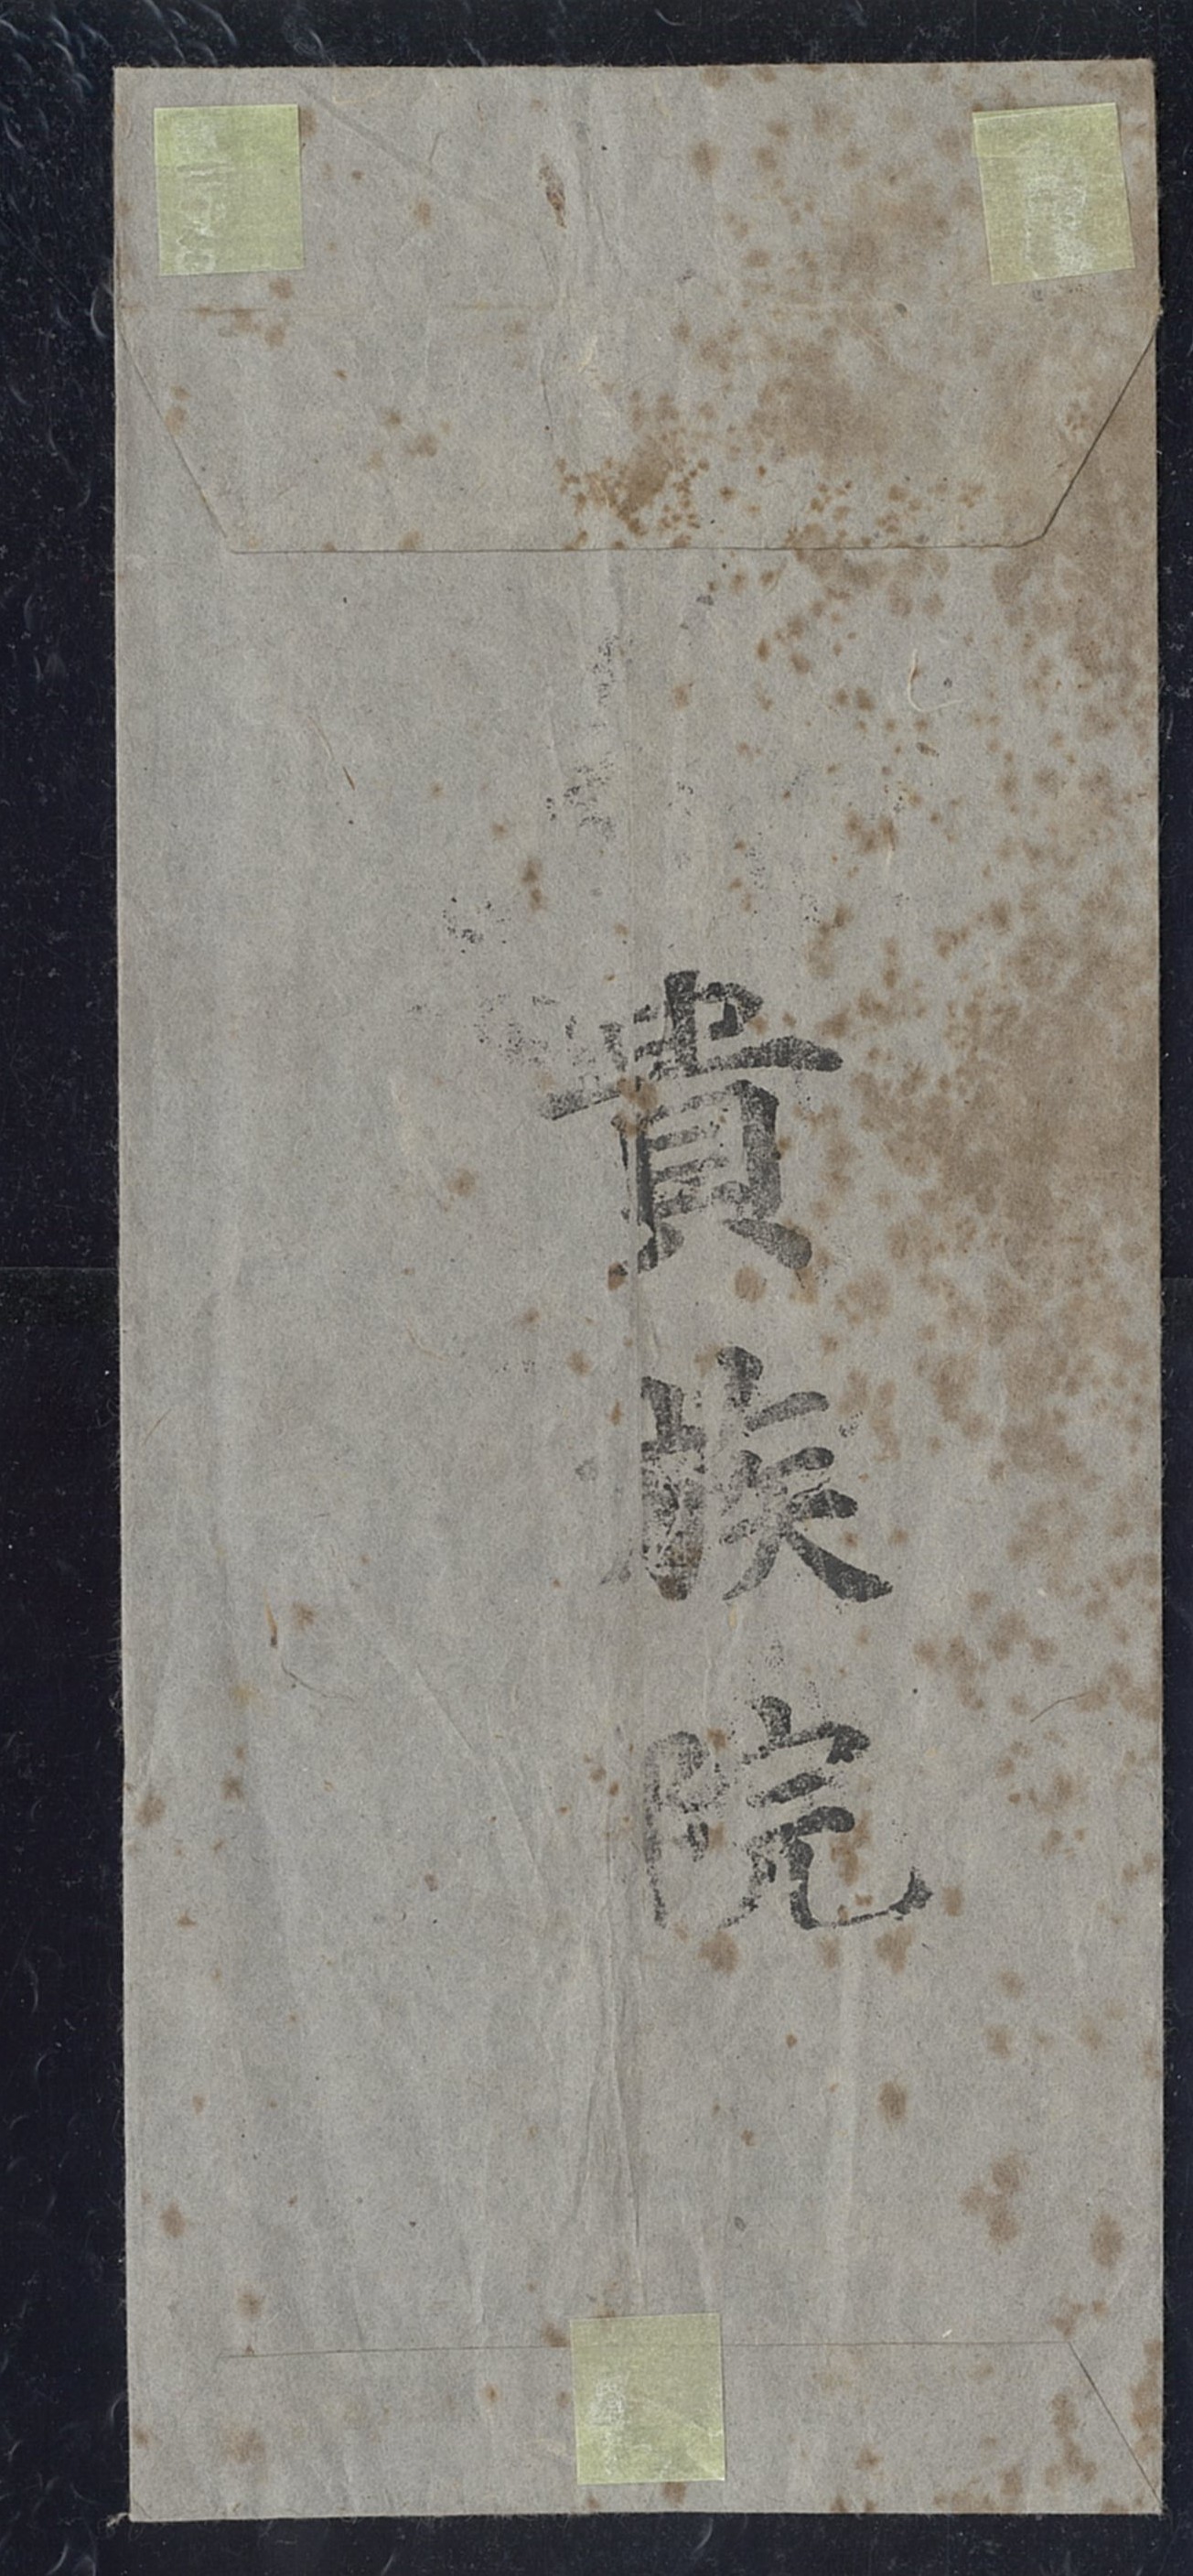 貴族院